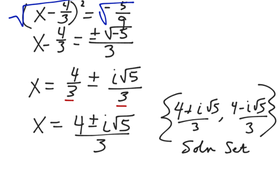 √(x - 4/3)² = √-5/9
x - 4/3 = ±√-5/3
x = 4/3 ± i√5/3
x = 4 ± i√5/3
{4+i√5/3, 4-i√5/3}
Soln Set